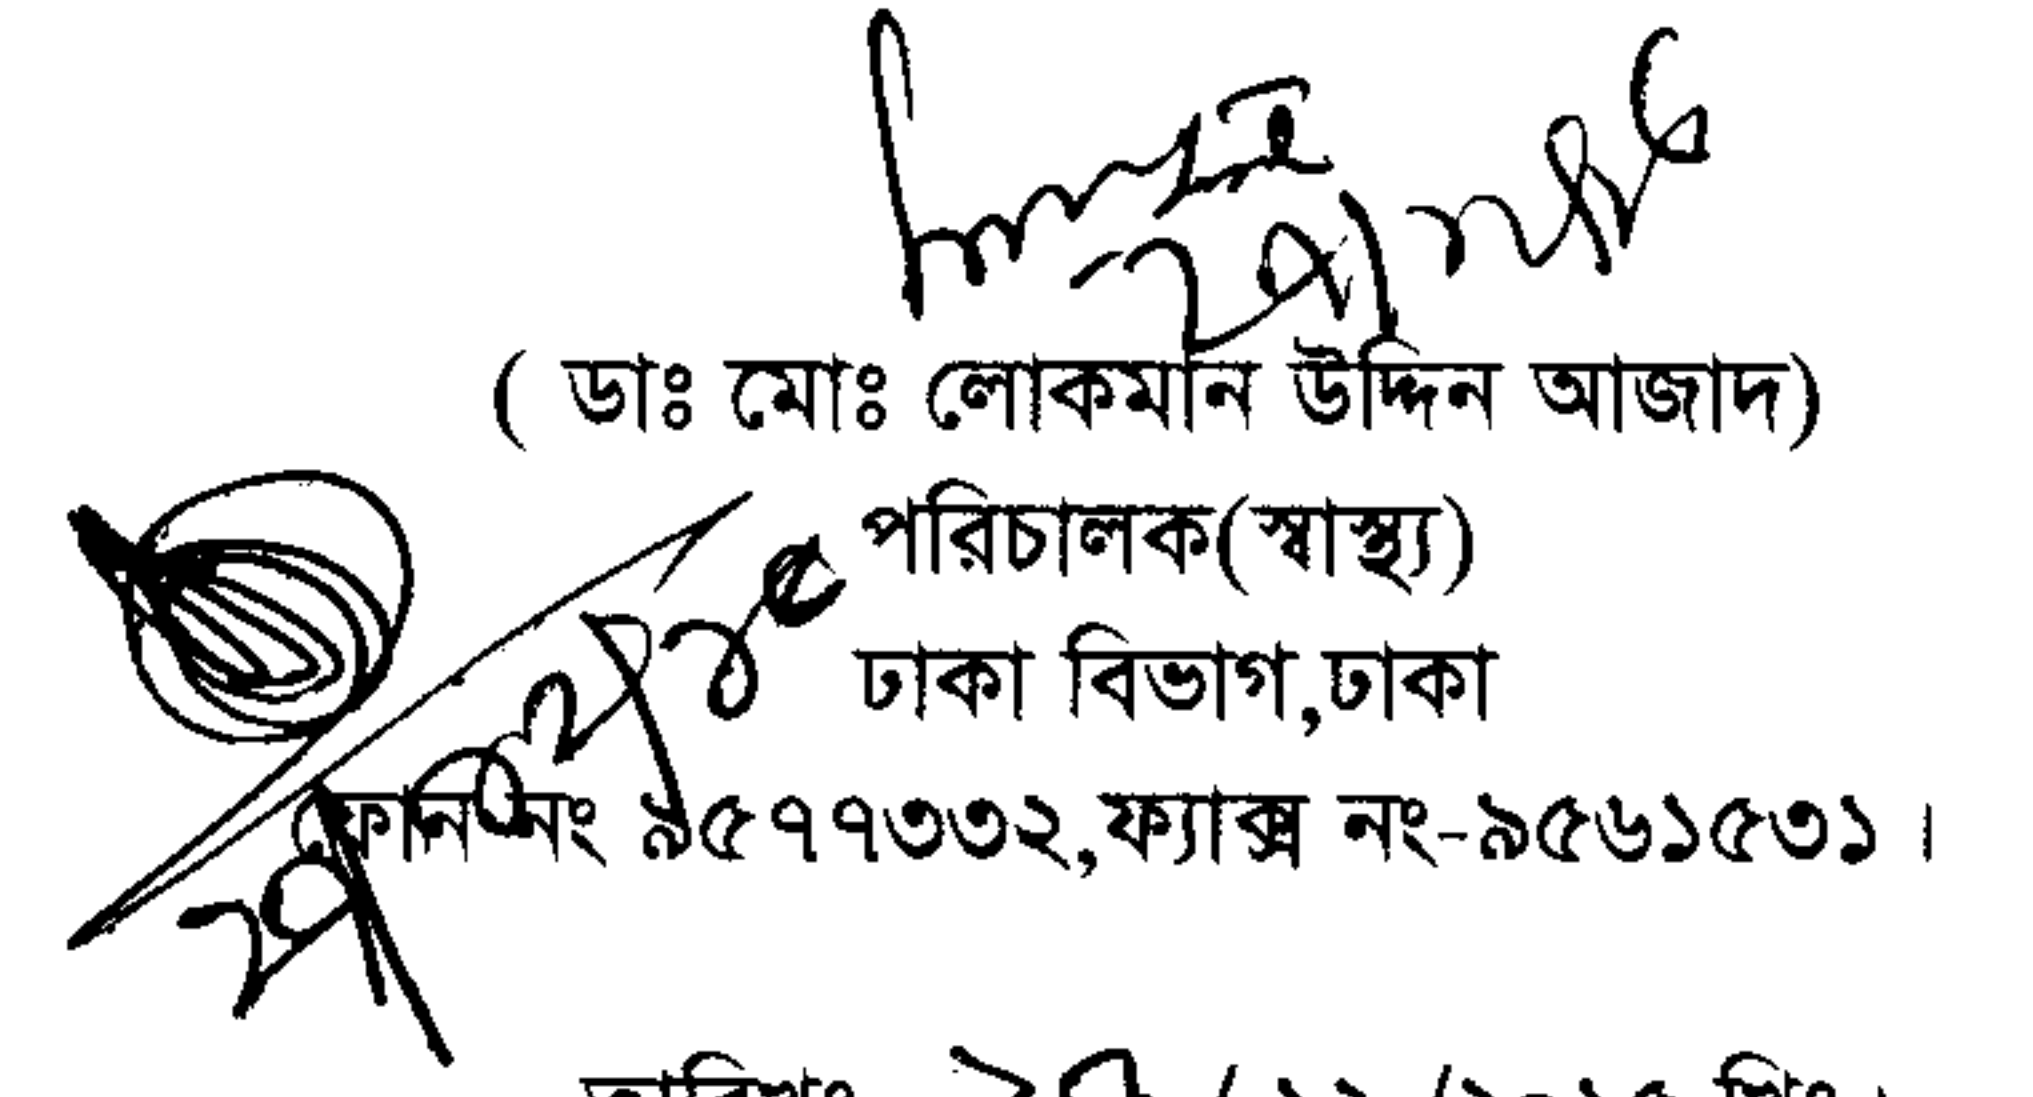 ( ডাঃ মোঃ লোকমান উদ্দিন আজাদ)
পরিচালক(স্বাস্থ্য)
ঢাকা বিভাগ,ঢাকা
ফোন নং ৯৫৭৭৩৩২,ফ্যাক্স নং-৯৫৬১৫৩১ ।
তারিখঃ / ১২ /২০১৫ খ্রিঃ ।